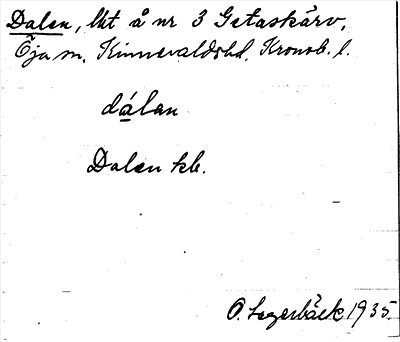 Dalen, lht å nr 3 Getaskärv,
Öja sn, Kinnevaldshd, Kronob. l.
dálan
Dalen kb.
O. Lagerbäck 1935.